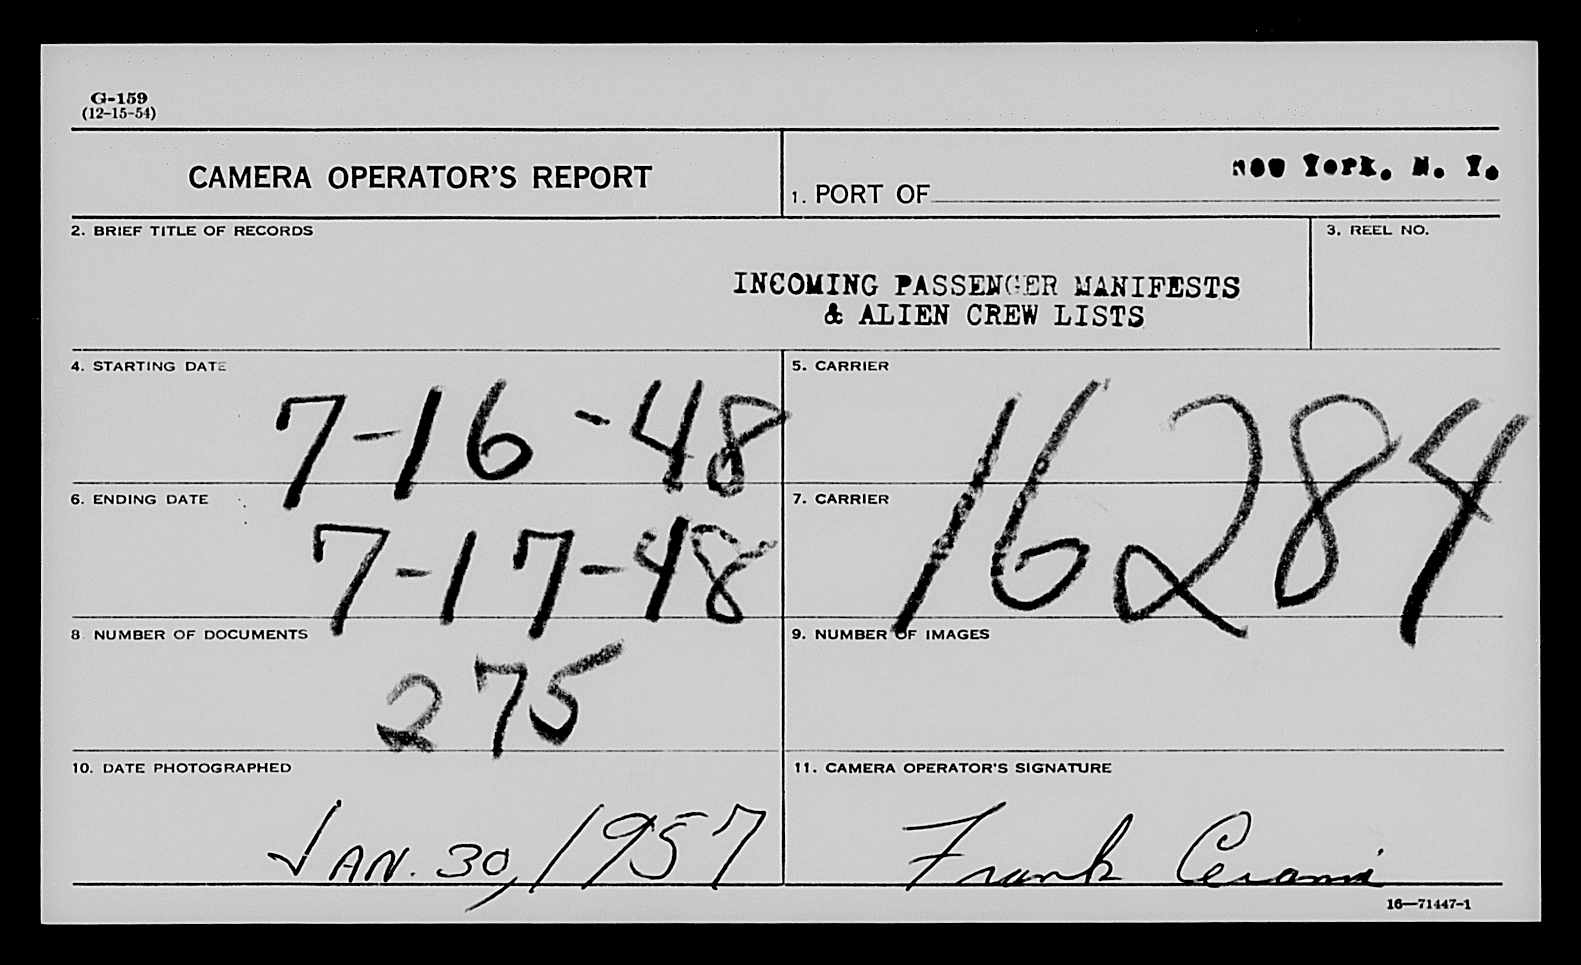 G-159
(12-15-54)
CAMERA OPERATOR'S REPORT
1. PORT OF New York, N. Y.
2. BRIEF TITLE OF RECORDS
INCOMING PASSENGER MANIFESTS
& ALIEN CREW LISTS
3. REEL NO.
4. STARTING DATE
7-16-48
5. CARRIER
16284
6. ENDING DATE
7-17-48
7. CARRIER
8 NUMBER OF DOCUMENTS
275
9. NUMBER OF IMAGES
10. DATE PHOTOGRAPHED
JAN. 30, 1957
11. CAMERA OPERATOR'S SIGNATURE
Frank Cerami
16—71447-1